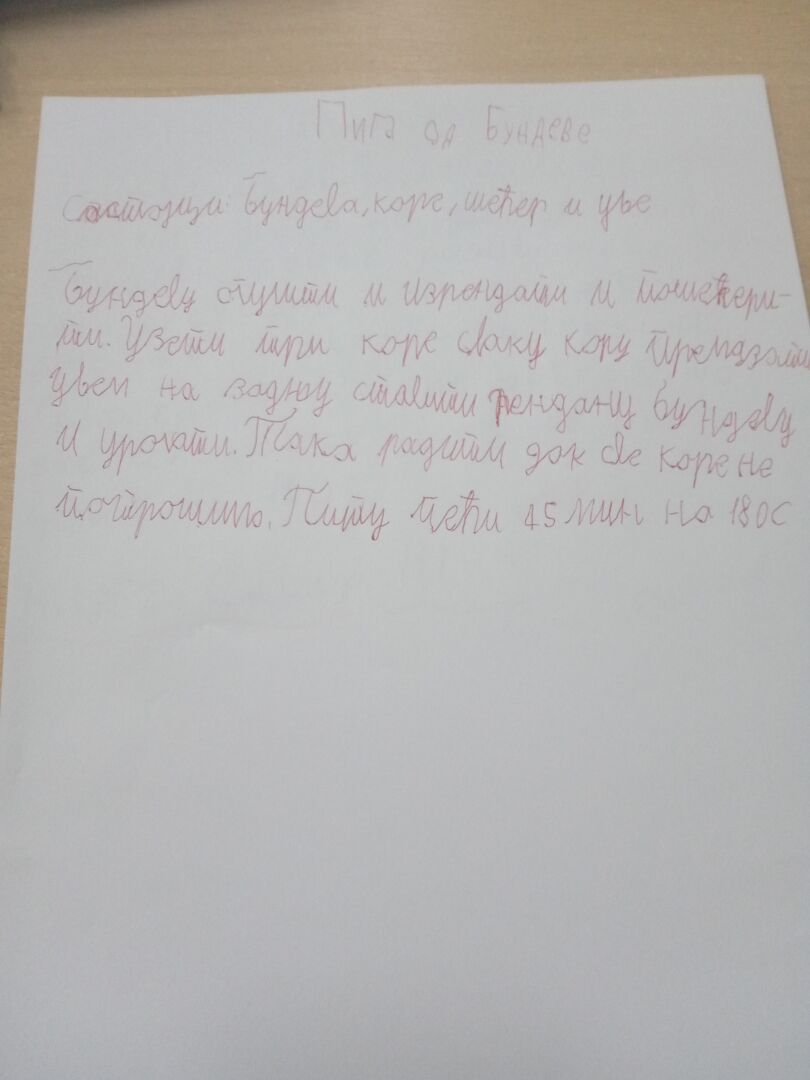 Пита од Бундеве
Састојци: Бундева, коре, шећер и уье
Бундеву огулити и изрендати и пошећери-
ти. Узети три коре сваку кору премазати
уьем на задњу ставити рендану бундеву
и уролати. Тако радити док све коре не
потрошимо. Питу пећи 45 мин на 180C